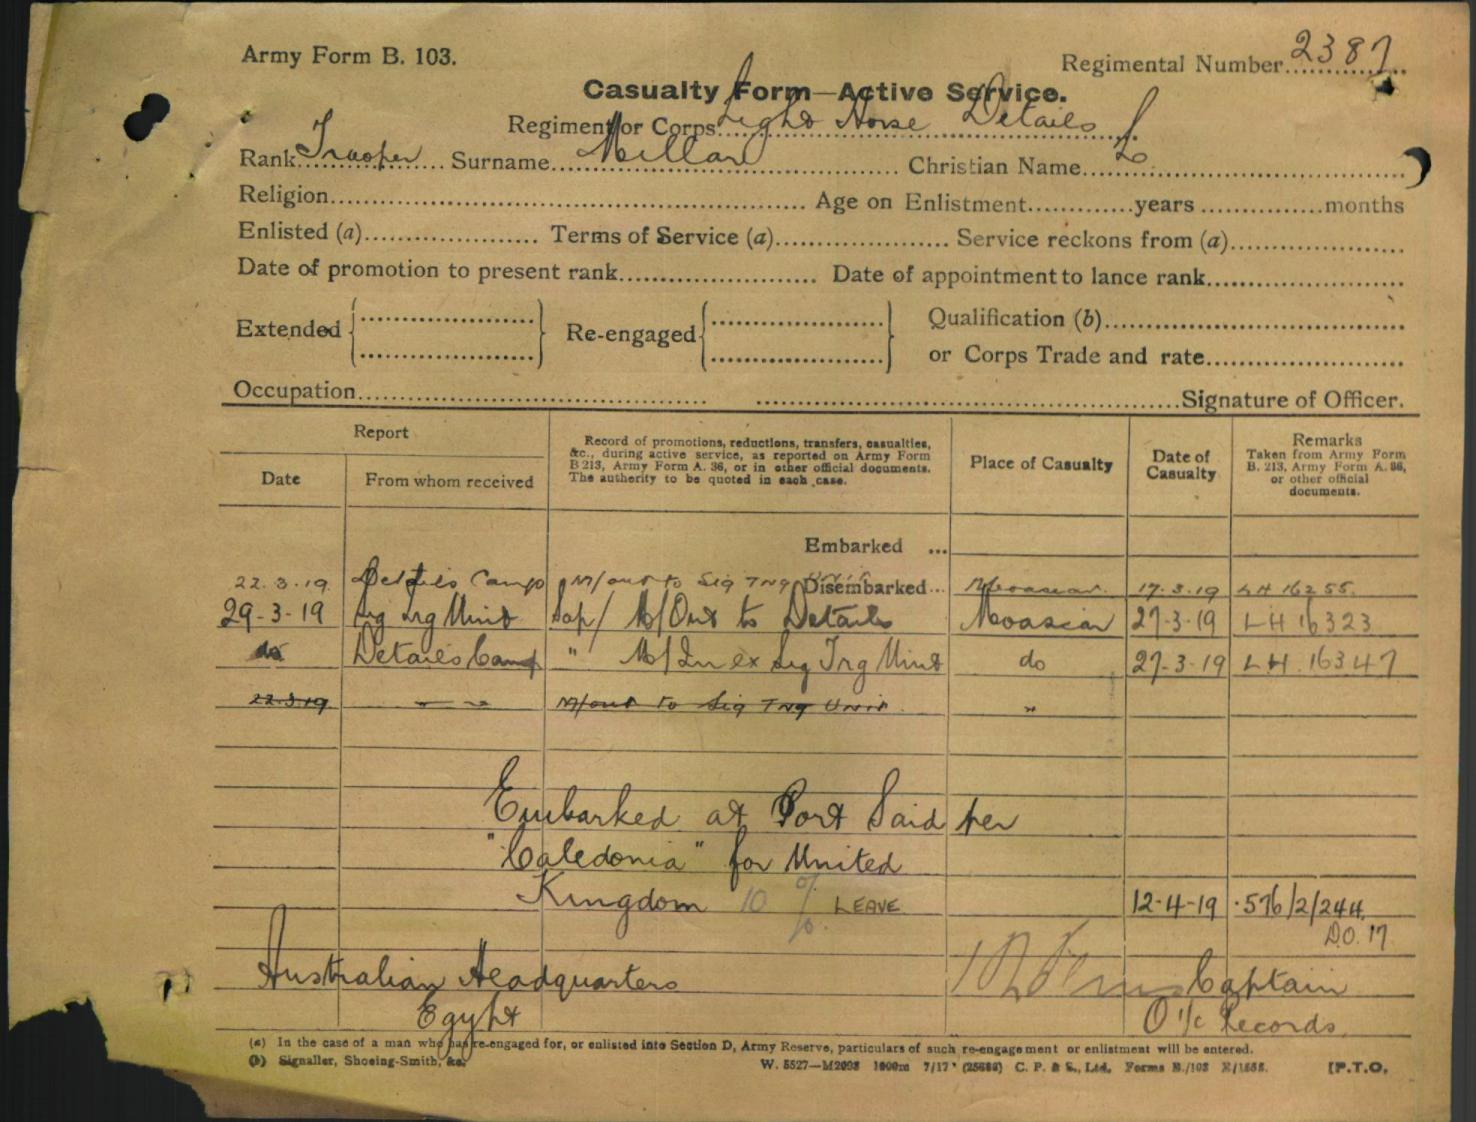 Army Form B. 103.
Regimental Number 2387
Casualty Form—Active Service.
Regiment or Corps Light Horse Details
Rank Trooper Surname Millar Christian Name L
Religion Age on Enlistment years months
Enlisted (a) Terms of Service (a) Service reckons from (a)
Date of promotion to present rank Date of appointment to lance rank
Extended Re-engaged Qualification (b)
or Corps Trade and rate
Occupation Signature of Officer.
Report
Date
From whom received
Record of promotions, reductions, transfers, casualties,
&c., during active service, as reported on Army Form
B 213, Army Form A. 36, or in other official documents.
The authority to be quoted in each case.
Place of Casualty
Date of
Casualty
Remarks
Taken from Army Form
B. 213, Army Form A. 36,
or other official
documents.
Embarked ...
22.3.19 Details Camp M/out to Sig Tng Unit Disembarked... Moascar 17.3.19 LH 16255
29-3-19 Sig Trg Unit Sap/ M/Out to Details Moascar 27-3-19 LH 16323
do Details Camp " M/In ex Sig Trg Unit do 27-3-19 LH.16347
22.3.19 " " M/out to Sig Tng Unit "
Embarked at Port Said per
"Caledonia" for United
Kingdom 10 % LEAVE 12-4-19 .576/2/244.
D.O. 17
Australian Headquarters Captain
Egypt O i/c Records
(a) In the case of a man who has re-engaged for, or enlisted into Section D, Army Reserve, particulars of such re-engagement or enlistment will be entered.
(b) Signaller, Shoeing-Smith, &c.
W. 5527—M2093 1000m 7/17 C. P. & S., Ltd. Forms B./103 E/1555.
[P.T.O.